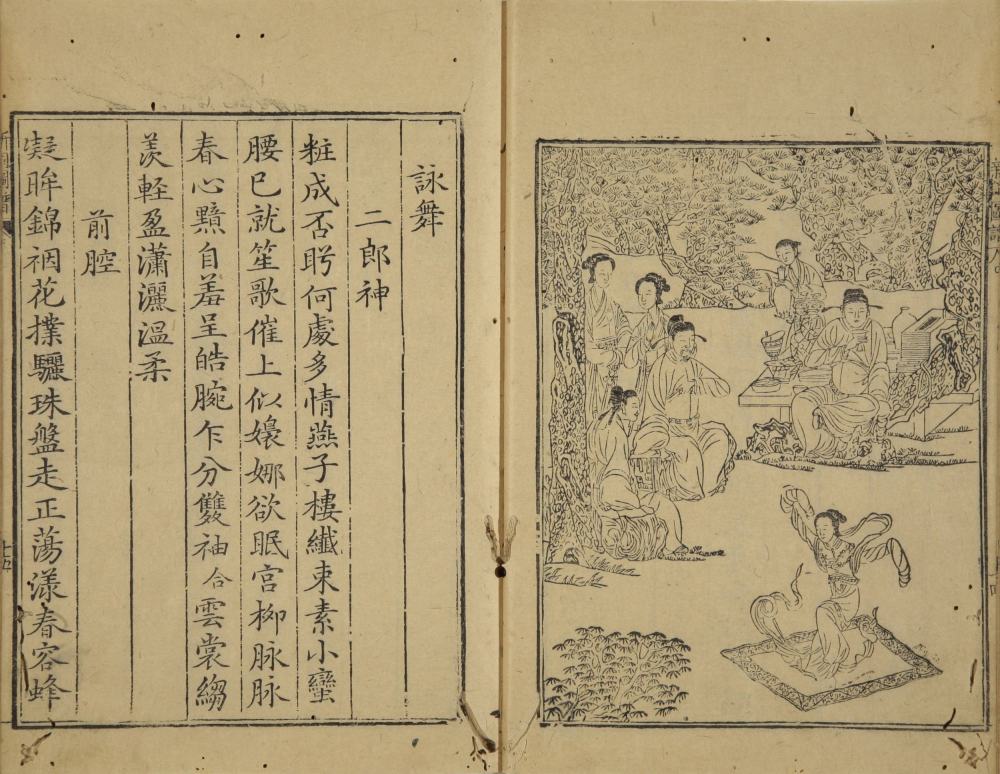 詠舞
二郎神
粧成否盻何處多情燕子樓纖束素小蠻
腰已就笙歌催上似嬝娜欲眠宮柳脉脉
春心黯自羞呈皓腕乍分雙袖合雲裳縐
羨輕盈瀟灑溫柔
前腔
凝眸錦裀花撲驪珠盤走正蕩漾春容蜂